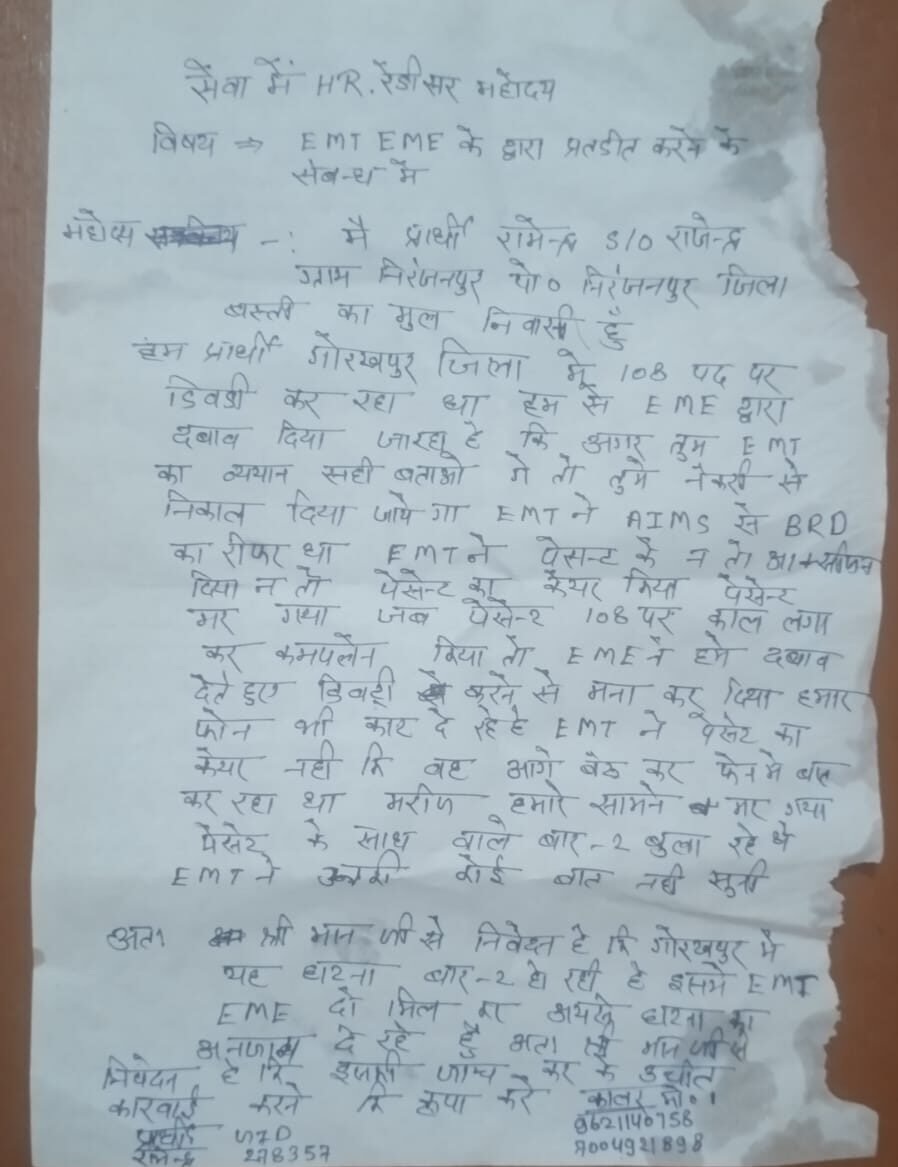 सेवा में HR. रेडीसर महोदय
विषय ⇒ EMT EME के द्वारा प्रतडीत करने के
सबन्ध मे
महोदय -: मै प्रार्थी रामेन्द्र S/O राजेन्द्र
ग्राम निरंजनपुर पो० निरंजनपुर जिला
बस्ती का मुल निवासी हुँ
हम प्रार्थी गोरखपुर जिला मे 108 पद पर
डिवडी कर रहा था हम से EME द्वारा
दबाव दिया जारहा है कि अगर तुम EMT
का व्यथान सही बताओ गे तो तुमे नेकरी से
निकाल दिया जाये गा EMT ने AIMS से BRD
का रीफर था EMT ने पेसन्ट के न तो
दिया न तो पेसेन्ट का केयर किया पेसेन्ट
मर गया जब पेसेन्ट 108 पर काल लगा
कर कमपलेन किया तो EME ने हमे दबाव
देते हुए डिवडी करने से मना कर दिया हमार
फोन भी काट दे रहे हे EMT ने पेसेट का
केयर नही कि वह आगे बेठ कर फेन मे बात
कर रहा था मरीज हमारे सामने मर गया
पेसेट के साथ वाले बार-2 बुला रहे थे
EMT ने उनकी कोई बात नही सुनी
अता श्री मान जी से निवेदन हे कि गोरखपुर मे
यह घटना बार-2 हो रही हे इसमे EMT
EME दो मिल कर घटना का
अनजाम दे रहे हैं अता श्री मान जी से
निवेदन है कि इसकी जाच कर के उचीत
कारवाई करने कि कृपा करे कालर मो०।
9621140758
प्रार्थी
7004921898
रामेन्द्र 278357